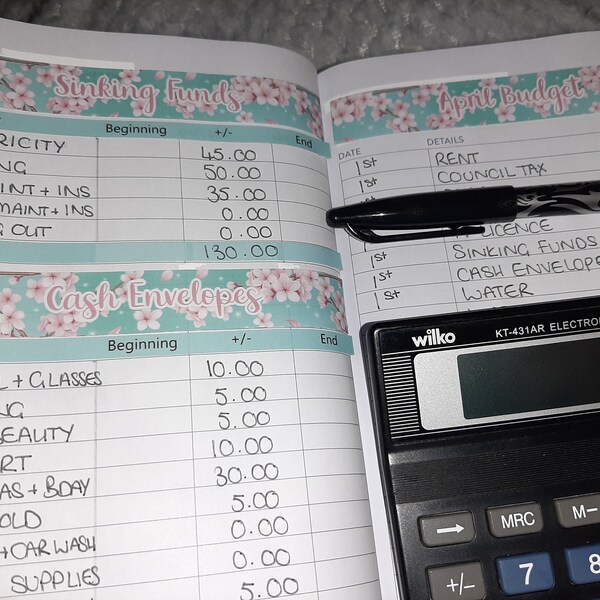 Sinking Funds
Beginning +/- End
RICITY 45.00
NG 50.00
INT + INS 35.00
MAINT + INS 0.00
G OUT 0.00
130.00
Cash Envelopes
Beginning +/- End
L + GLASSES 10.00
NG 5.00
BEAUTY 5.00
RT 10.00
AS + BDAY 30.00
OLD 5.00
+ CAR WASH 0.00
SUPPLIES 0.00
5.00
April Budget
DATE DETAILS
1st RENT
1st COUNCIL TAX
1st
LICENCE
1st SINKING FUNDS
1st CASH ENVELOPE
1st WATER
wilko KT-431AR ELECTRON
→ MRC M–
+/- 7 8